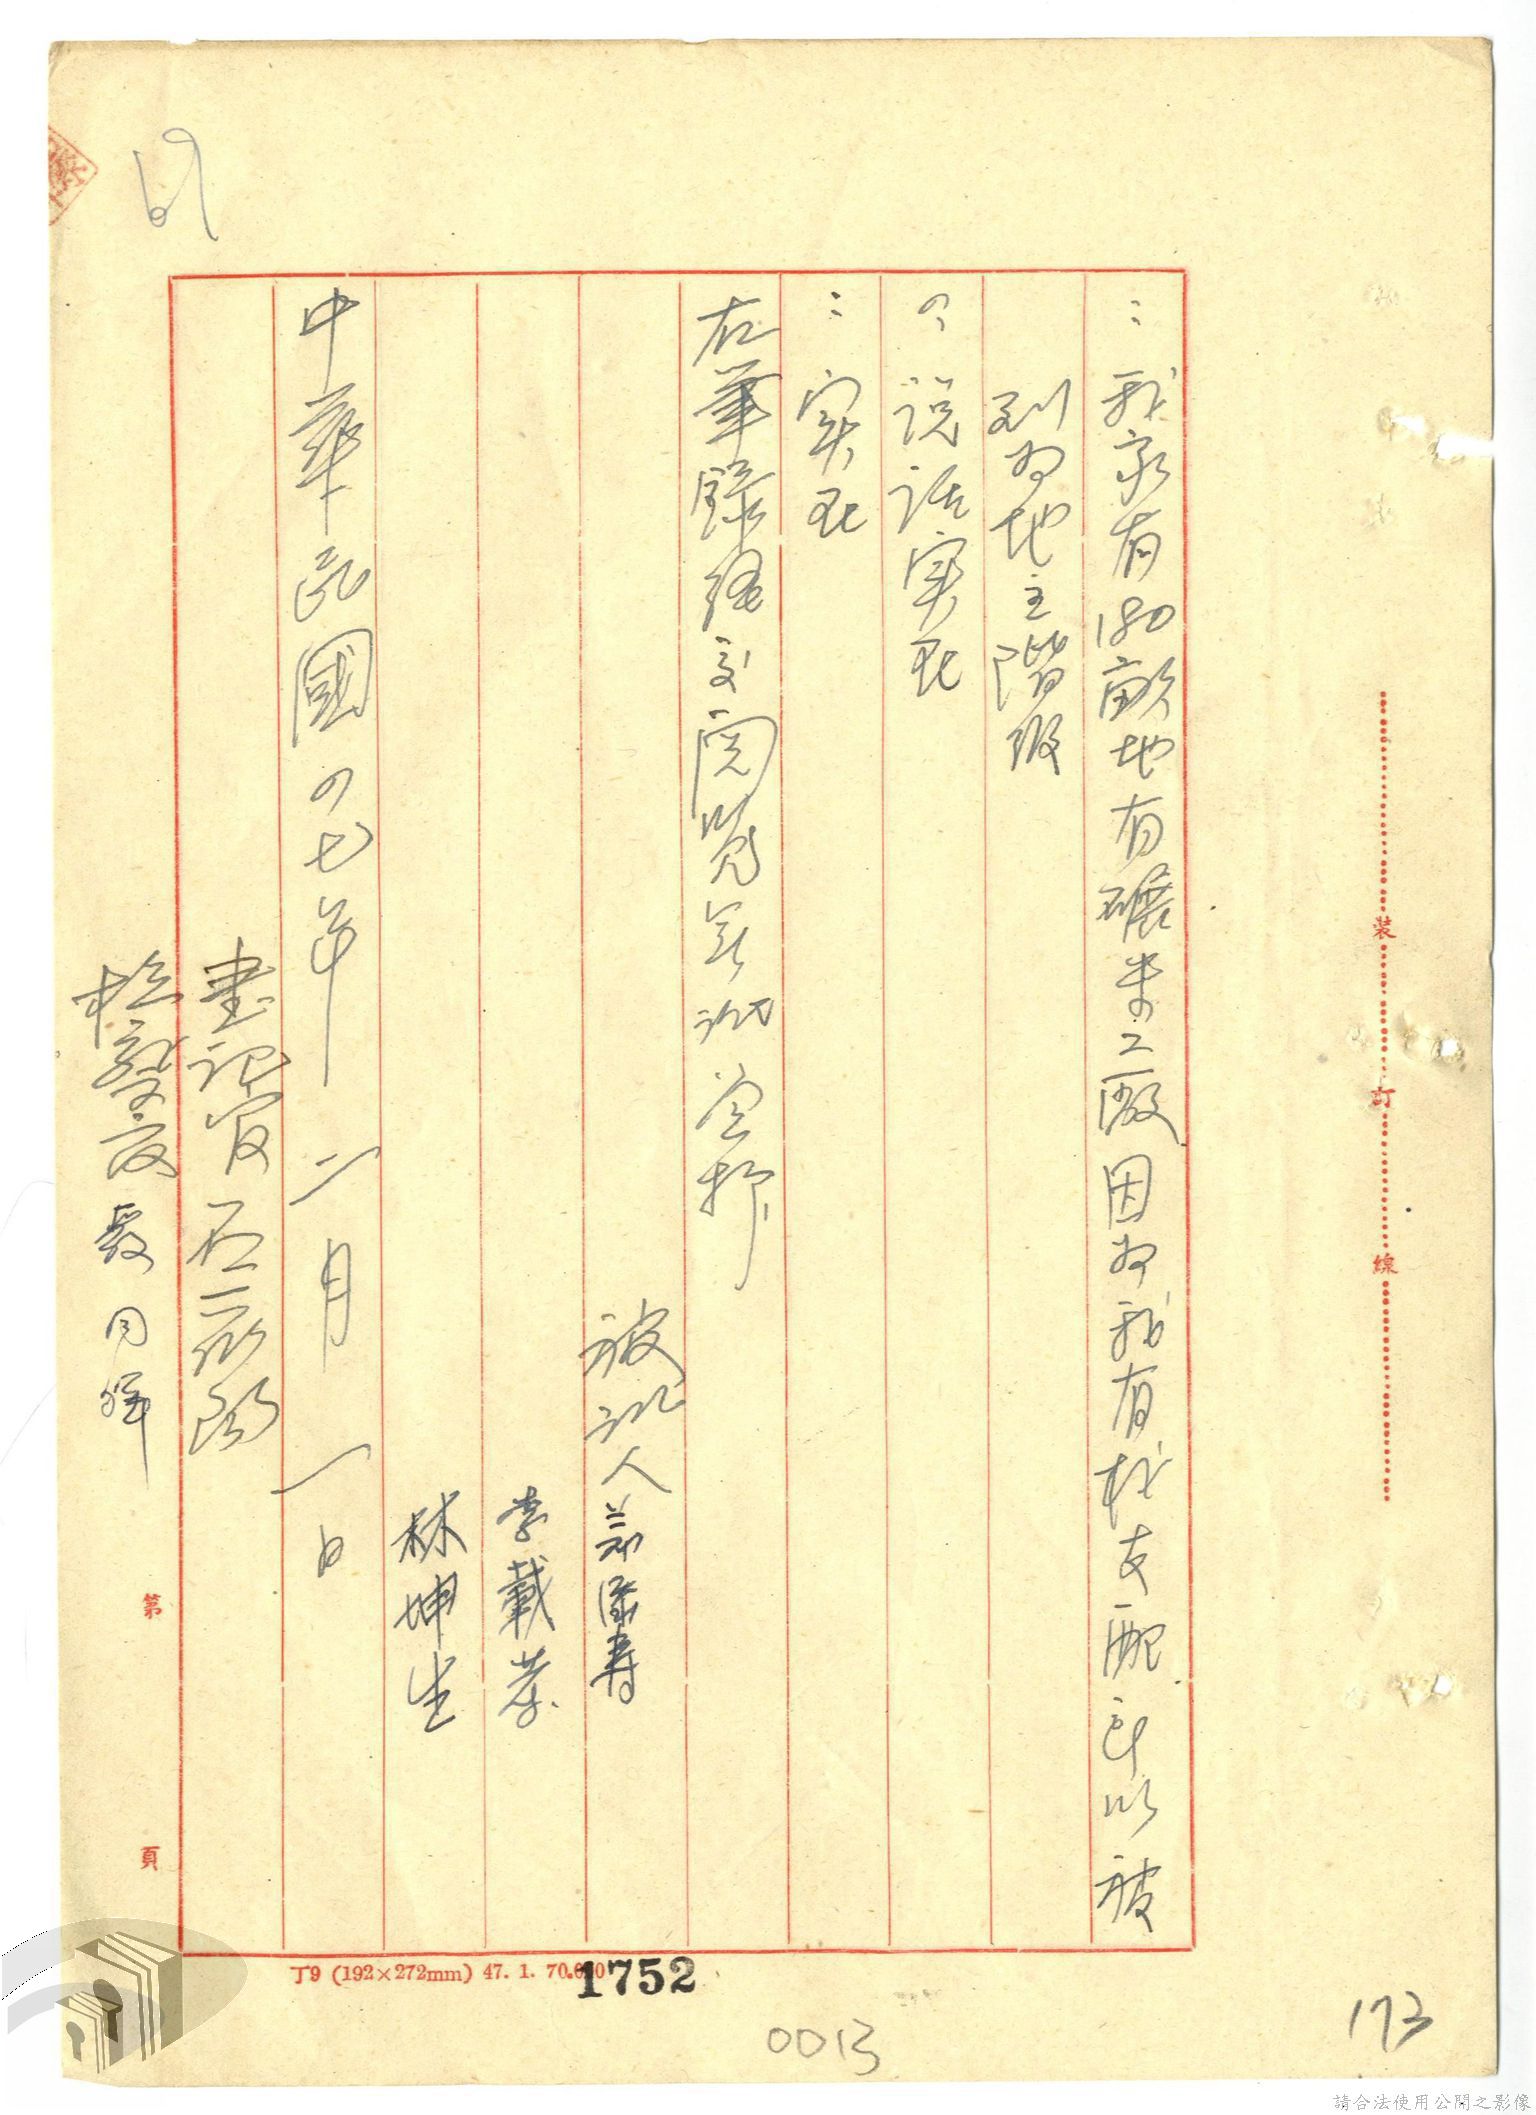 : 我家有180畝地有碾米工廠因為我有權支配所以被
列為地主階級
? 說話實在
: 實在
右筆錄經交閱覽無訛簽押
被訊人
李載
林坤生
中華民國四七年二月一日
書記官
檢察官
裝
訂
線
第
頁
丁9 (192×272mm) 47. 1. 70.000
1752
0013
173
請合法使用公開之影像